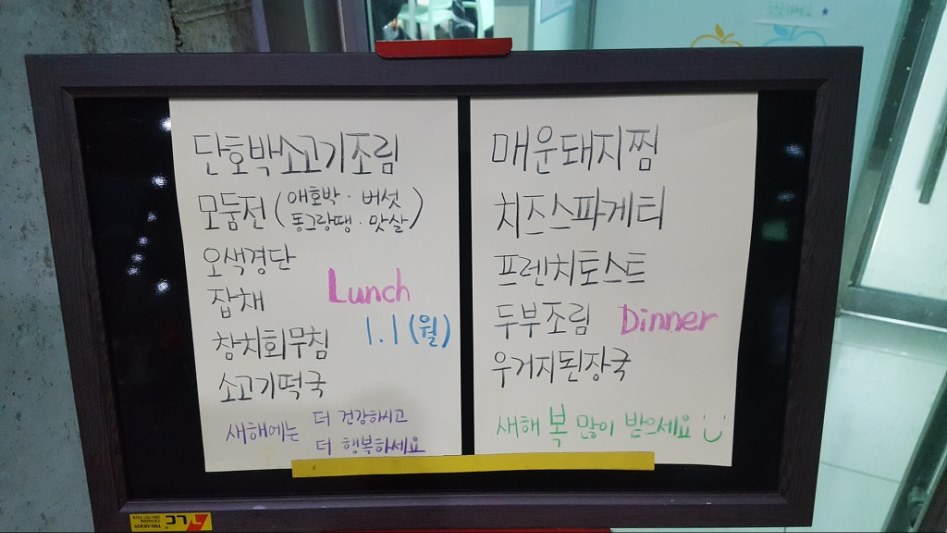 단호박소고기조림
모둠전 (애호박 · 버섯
동그랑땡 · 맛살)
오색경단
잡채
Lunch
창치회무침
1.1 (월)
소고기떡국
새해에는 더 건강하시고
더 행복하세요
매운돼지찜
치즈스파게티
프렌치토스트
두부조림
Dinner
우거지된장국
새해 복 많이 받으세요